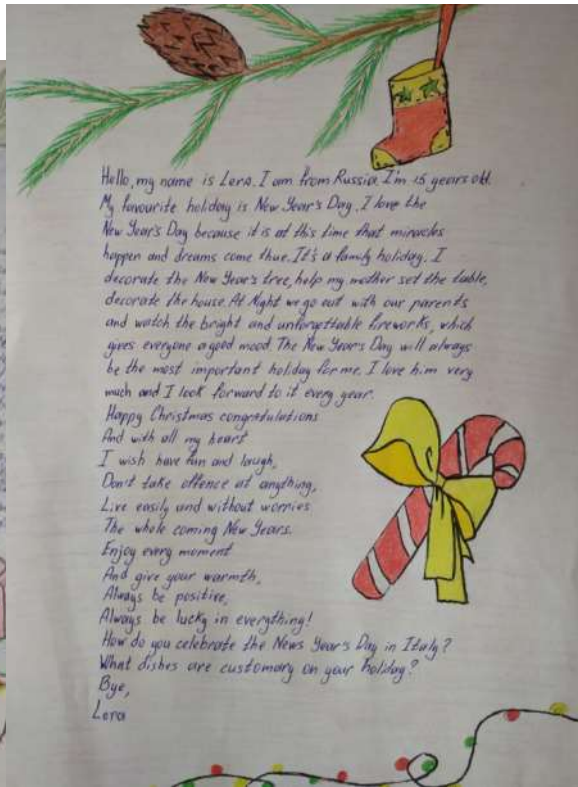 Hello, my name is Lera. I am from Russia. I'm 15 years old.
My favourite holiday is New Year's Day. I love the
New Year's Day because it is at this time that miracles
happen and dreams come thue. It's a family holiday. I
decorate the New Year's tree, help my mother set the table,
decorate the house. At Night we go out with our parents
and watch the bright and unforgettable fireworks, which
gives everyone a good mood. The New Year's Day will always
be the most important holiday for me. I love him very
much and I look forward to it every year.
Happy Christmas congratulations
And with all my heart
I wish have fun and laugh,
Don't take offence at anything,
Live easily and without worries
The whole coming New Years.
Enjoy every moment
And give your warmth,
Always be positive,
Always be lucky in everything!
How do you celebrate the News Year's Day in Italy?
What dishes are customary on your holiday?
Bye,
Lera